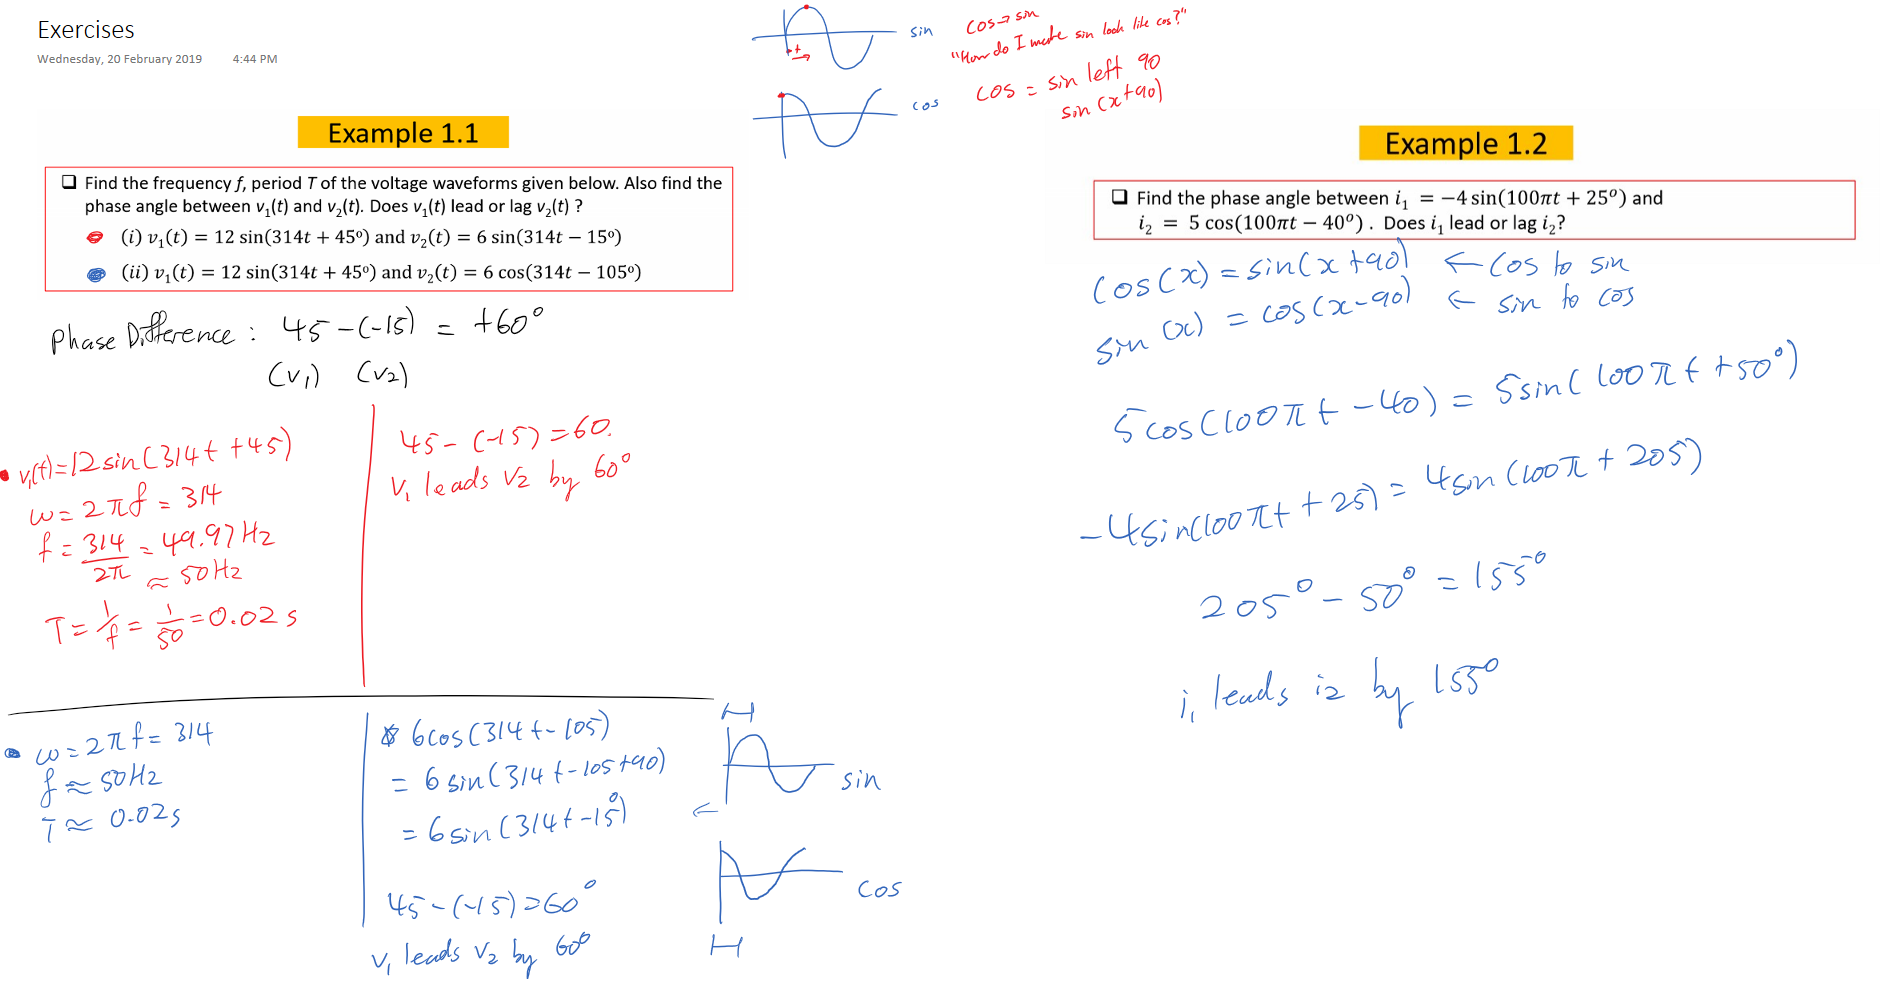 Exercises
Wednesday, 20 February 2019 4:44 PM
sin
cos
cos→sin
"How do I make sin look like cos?"
cos = sin left 90
sin(x+90)
Example 1.1
❑ Find the frequency f, period T of the voltage waveforms given below. Also find the
phase angle between v₁(t) and v₂(t). Does v₁(t) lead or lag v₂(t) ?
(i) v₁(t) = 12 sin(314t + 45º) and v₂(t) = 6 sin(314t − 15º)
(ii) v₁(t) = 12 sin(314t + 45º) and v₂(t) = 6 cos(314t − 105º)
Phase Difference : 45 - (-15) = +60°
(V₁) (V₂)
v₁(t)=12sin(314t +45)
ω = 2πf = 314
f = 314/2π = 49.97Hz
≈ 50Hz
T = 1/f = 1/50 = 0.02s
45 - (-15) = 60.
V₁ leads V2 by 60°
ω = 2πf = 314
f ≈ 50Hz
T ≈ 0.02s
6cos(314t-105)
= 6sin(314t-105+90)
= 6sin(314t-15°)
←
45-(-15)=60°
V₁ leads V₂ by 60°
sin
cos
Example 1.2
❑ Find the phase angle between i₁ = −4 sin(100πt + 25º) and
i₂ = 5 cos(100πt − 40º) . Does i₁ lead or lag i₂?
cos(x) = sin(x+90) ← cos to sin
sin(x) = cos(x-90) ← sin to cos
5cos(100πt-40) = 5sin(100πt+50°)
-4sin(100πt+25) = 4sin(100π+205)
205° - 50° = 155°
i₁ leads i2 by 155°